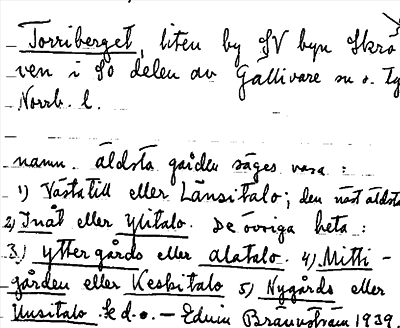 Torriberget, liten by SV byn Skrö
ven i SO delen av Gällivare sn o. tg
Norrb. l.
namn. äldsta gården säges vara :
1) Västatill eller Länsitalo; den näst äldsta
2) Inåt eller Ylitalo. De övriga heta :
3) ytter gårds eller alatalo. 4) Mitti-
gården eller Keskitalo 5) Nygårds eller
Uusitalo. d.o. — Edvin Brännström 1939.